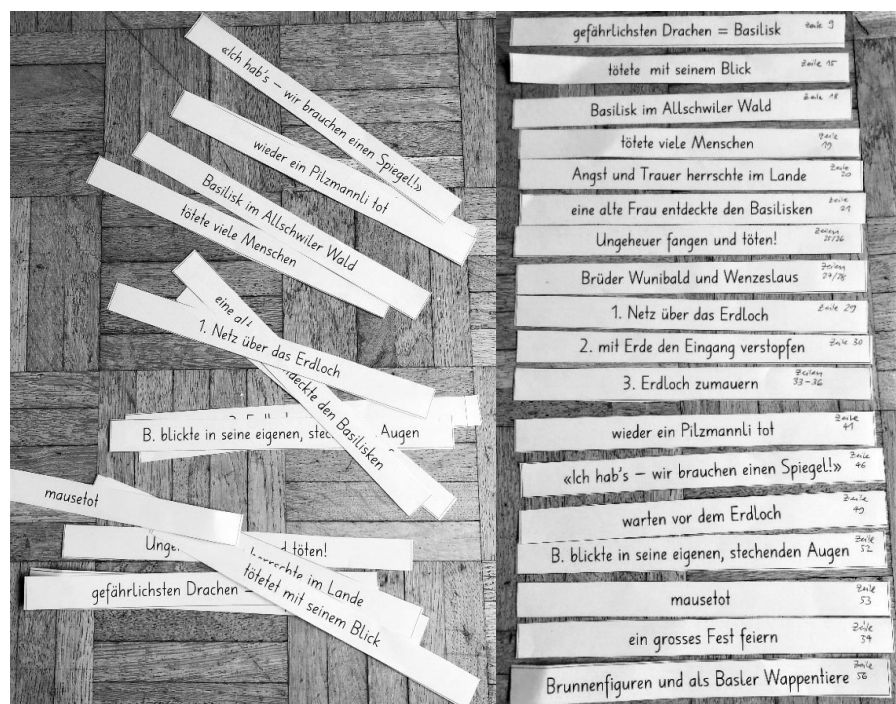 «Ich hab's – wir brauchen einen Spiegel!»
wieder ein Pilzmannli tot
Basilisk im Allschwiler Wald
tötete viele Menschen
eine alt
1. Netz über das Erdloch
deckte den Basilisken
B. blickte in seine eigenen, stec Augen
mausetot
Unge d töten!
errschte im Lande
tötetet mit seinem Blick
gefährlichsten Drachen =
gefährlichsten Drachen = Basilisk Zeile 9
tötete mit seinem Blick Zeile 15
Basilisk im Allschwiler Wald Zeile 18
tötete viele Menschen Zeile 19
Angst und Trauer herrschte im Lande Zeile 20
eine alte Frau entdeckte den Basilisken Zeile 21
Ungeheuer fangen und töten! Zeilen 25/26
Brüder Wunibald und Wenzeslaus Zeilen 27/28
1. Netz über das Erdloch Zeile 29
2. mit Erde den Eingang verstopfen Zeile 30
3. Erdloch zumauern Zeilen 33-36
wieder ein Pilzmannli tot Zeile 41
«Ich hab's – wir brauchen einen Spiegel!» Zeile 46
warten vor dem Erdloch Zeile 49
B. blickte in seine eigenen, stechenden Augen Zeile 52
mausetot Zeile 53
ein grosses Fest feiern Zeile 54
Brunnenfiguren und als Basler Wappentiere Zeile 56